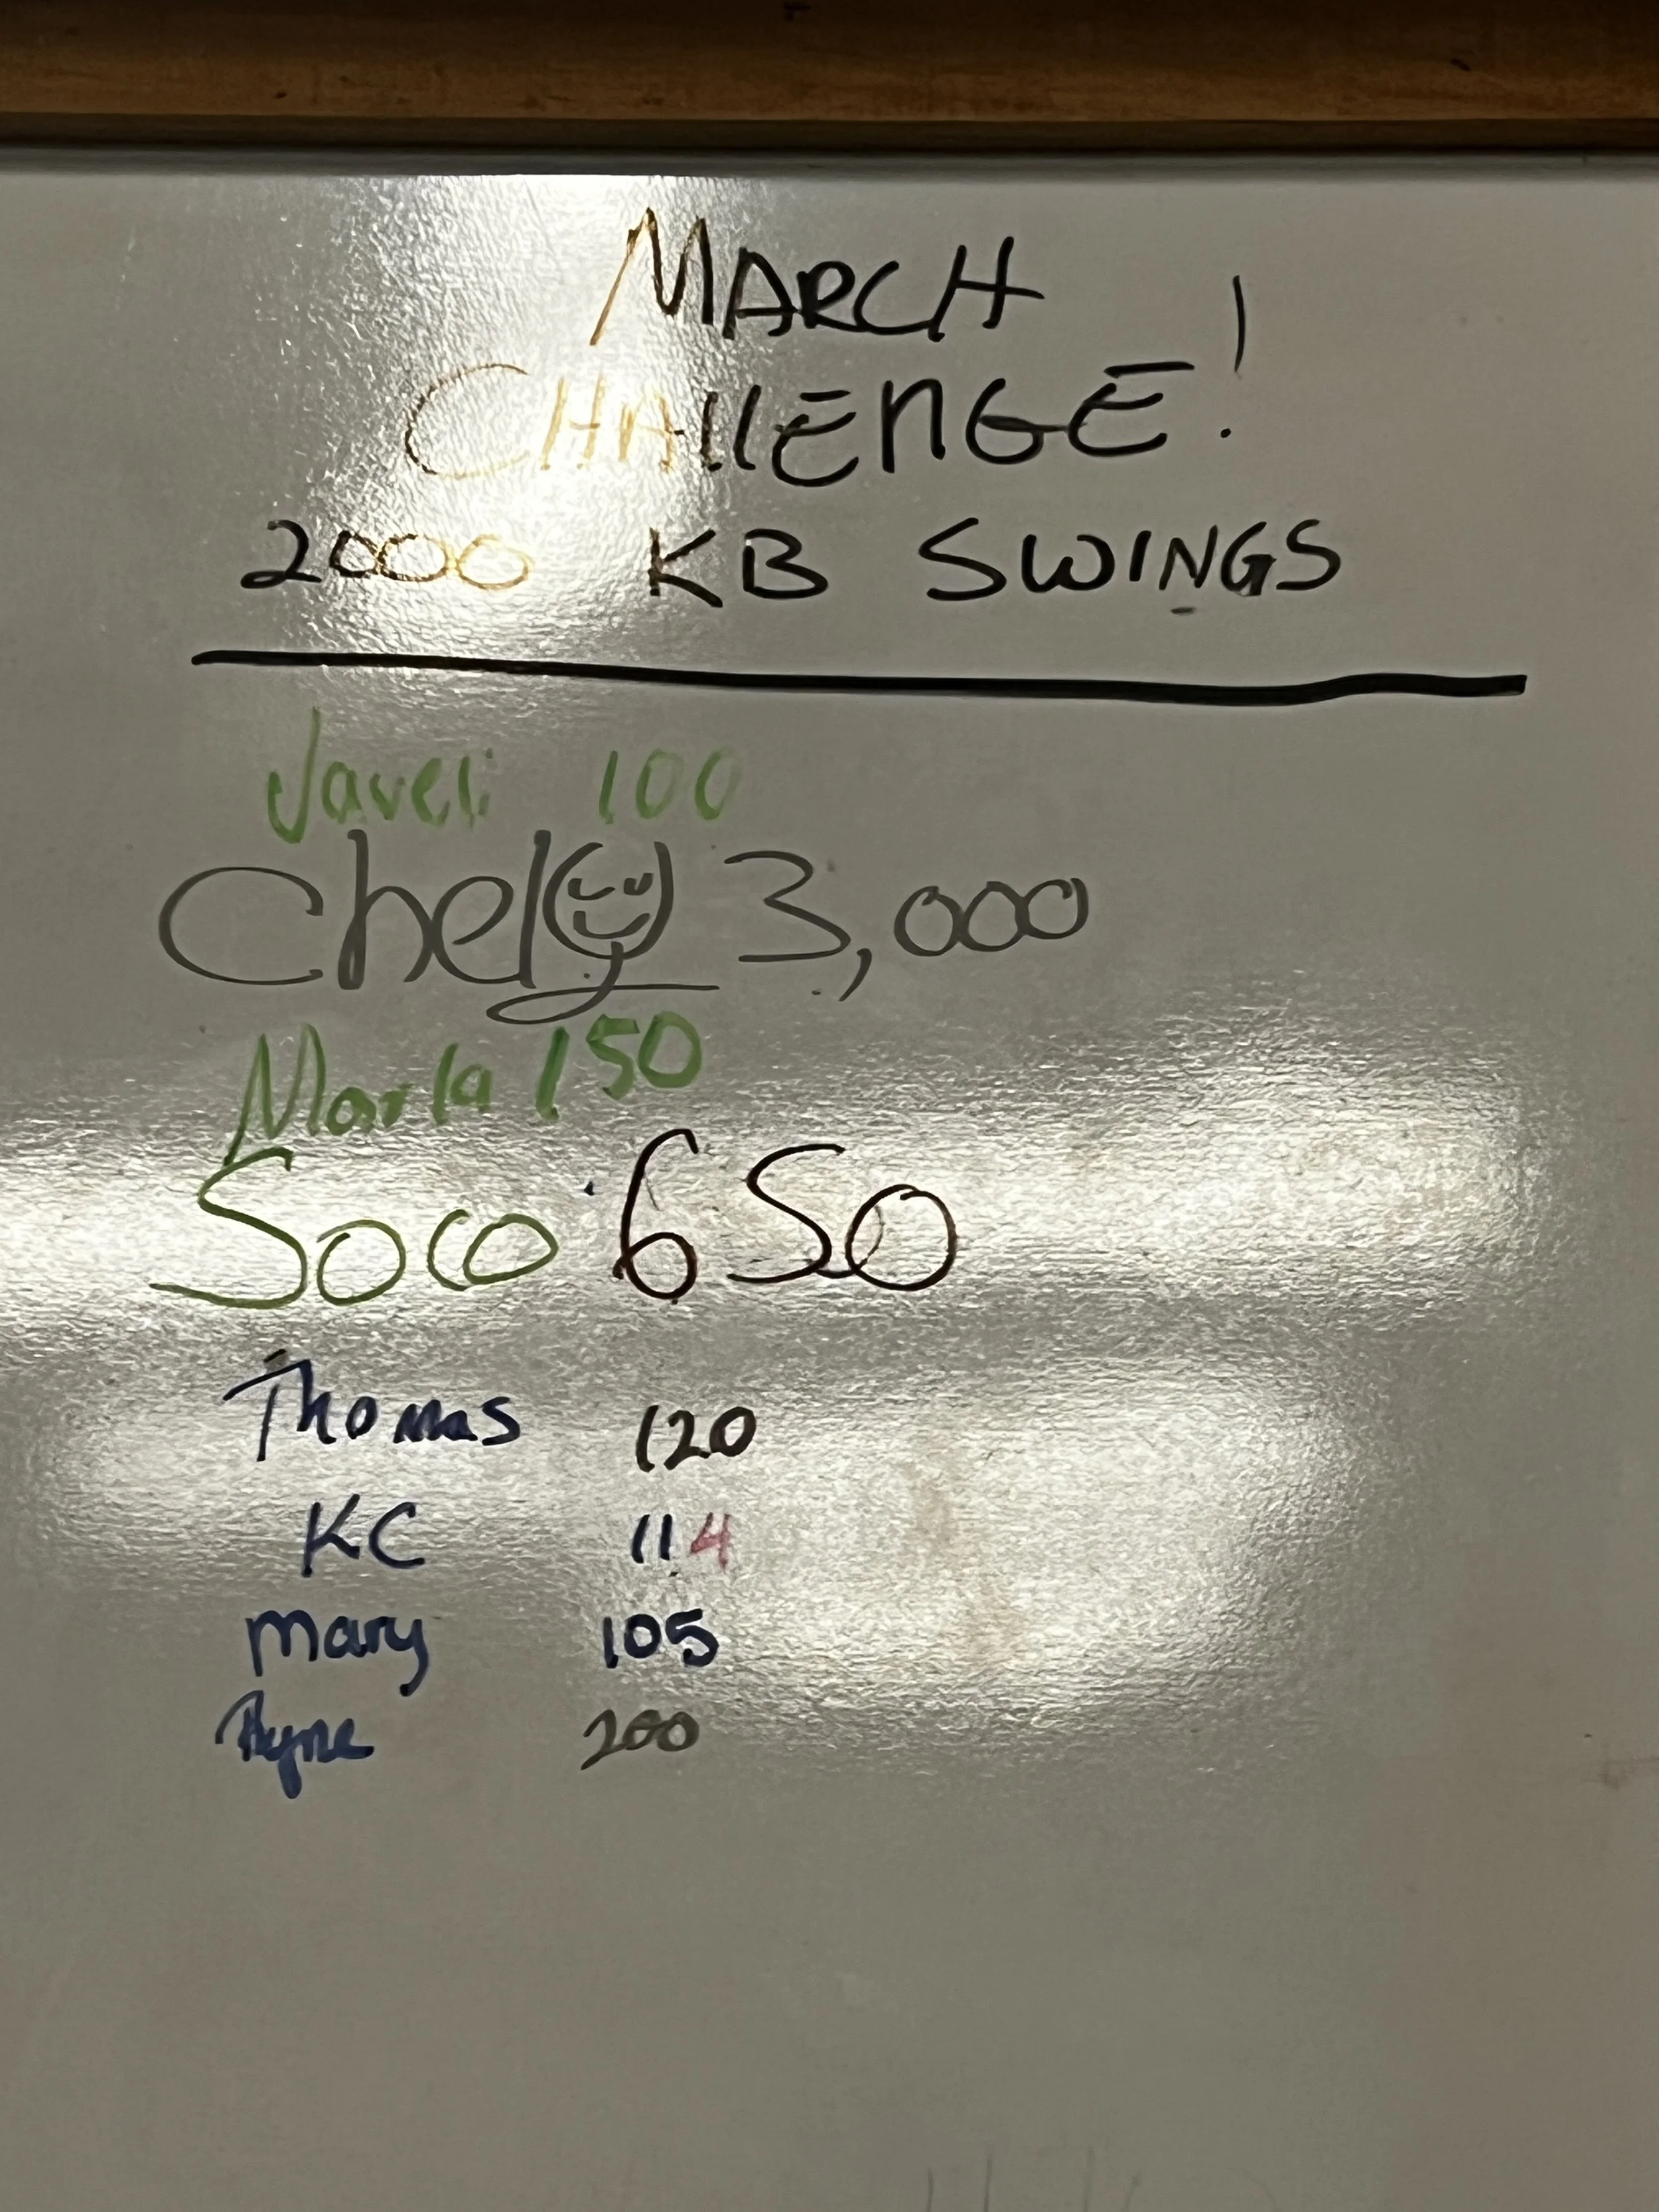 MARCH
CHALLENGE!
2000 KB SWINGS
Javeli 100
Chely 3,000
Marla 150
Soco 650
Thomas 120
KC 114
Mary 105
200